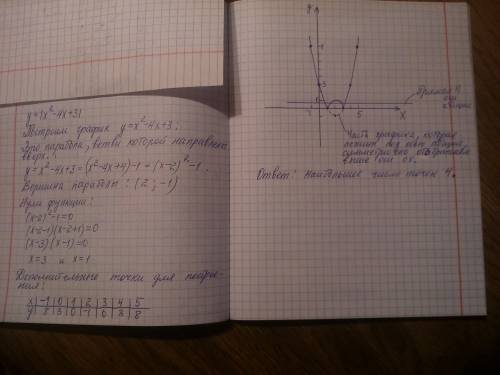 y=|x²-4x+3|
Построим график y=x²-4x+3.
Это парабола, ветви которой направлены
вверх.
y=x²-4x+3=(x²-4x+4)-1=(x-2)²-1.
Вершина параболы: (2;-1)
Нули функции:
(x-2)²-1=0
(x-2-1)(x-2+1)=0
(x-3)(x-1)=0
x=3 и x=1
Дополнительные точки для построе-
ния:
x -1 0 1 2 3 4 5
y 8 3 0 -1 0 3 8
y
3
1
-1
5
X
Прямая ||
оси
Часть графика, которая
лежит под осью
симметрично
выше оси ox.
Ответ: наибольшее число точек 4.